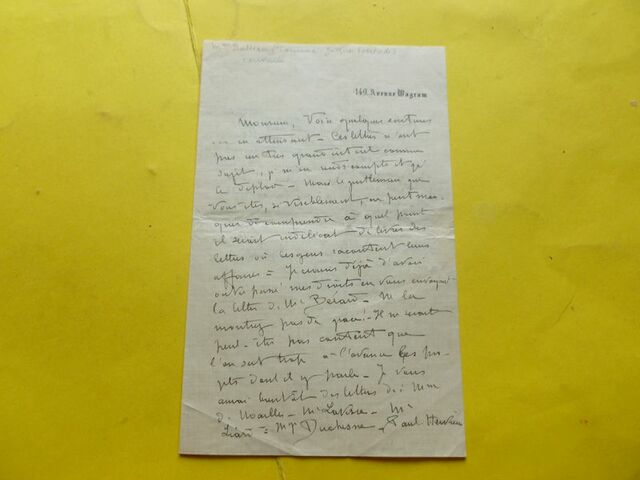 149, Avenue Wagram
Monsieur, Voici quelques écritures
... en attendant – Ces lettres n'ont
pas un très grand intérêt comme
sujet, je m'en rends compte et je
le déplore – Mais le gentleman que
vous êtes, si visiblement, ne peut man-
quer de comprendre à quel point
il serait indélicat de livrer des
lettres où les gens racontent leurs
affaires = Je crains déjà d'avoir
outrepassé mes droits en vous envoyant
la lettre de Mr Bérard – Ne la
montrez pas de grâce! – Il ne serait
peut-être pas content que
l'on sut trop à l'avance les pro-
jets dont il y parle – Je vous
aurai bientôt des lettres de: Mme
de Noailles – Mr Lavisse – Mr
Liard = Mgr Duchesne – Paul Hervieu